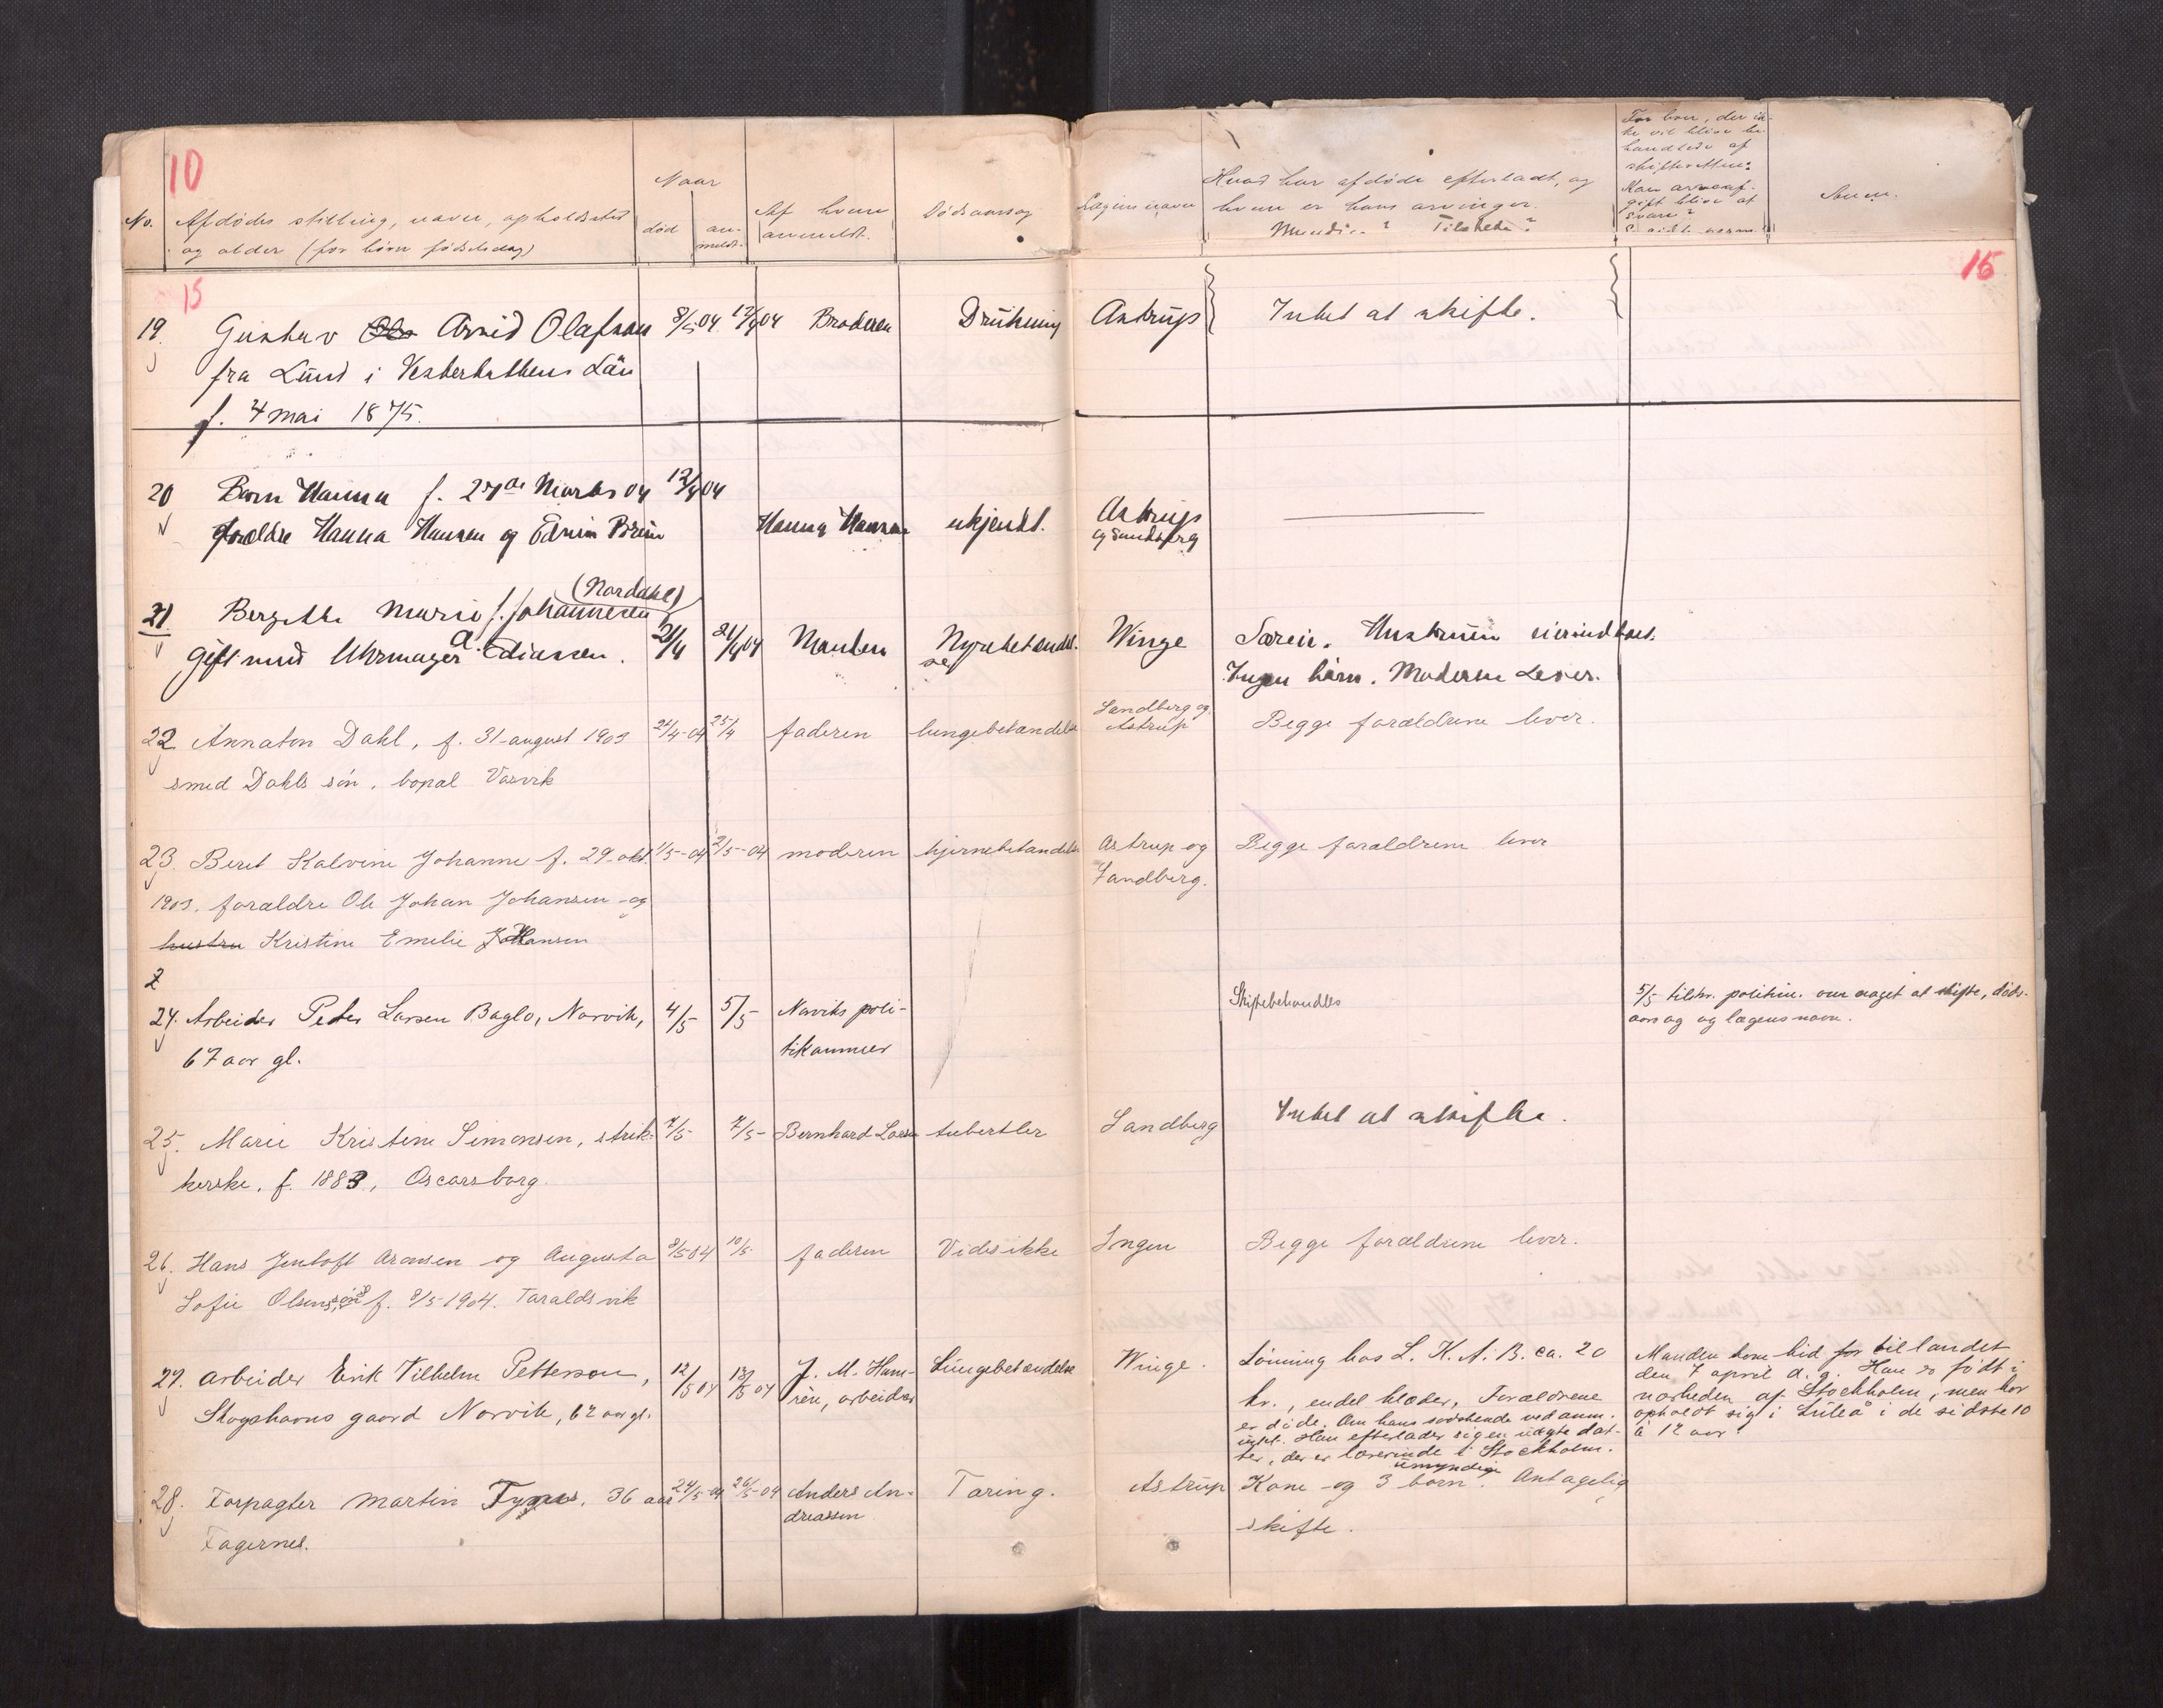 10
No. Afdødes stilling, navn, opholdssted
og alder (for børn fødselsdag)
Naar
død
an-
meldt.
Af hvem
anmeldt.
Dødsaarsag
Lægens navn
Hvad har afdøde efterladt, og
hvem er hans arvinger.
Myndi..? Tilstede?
For boer, der ik-
ke vil blive be-
handlede af
skifteretten:
Kan arveaf-
gift blive at
svare?
Anm.
15
15
19. Gustav Arvid Olafson 8/5 04 12/4 04 Broderen Drukning Astrup Intet at skifte.
fra Lund i Vesterbottens Län
f. 4 mai 1875.
20 Barn Hanna f. 27de Marts 04 12/4 04
forældre Hanna Hansen og Edvin Brun Hanna Hansen ukjendt. Astrup
og Sandberg
(Nordahl)
21. Bergitte Marie f. Johannesen
gift med Uhrmager A. Ediassen. 21/4 21/4 04 Manden Nyrebetændel-
se Winge Særeie. Hustruen eier indboet.
Ingen børn. Moderen Lever.
22 Annaton Dahl, f. 31 august 1903 24/4-04 25/4 faderen lungebetændelse Sandberg og
Astrup Begge forældrene lever.
smed Dahls søn. bopæl Vasvik
23. Beret Kalvine Johanne f. 29 okt. 1/5-04 2/5-04 moderen hjernebetændelse Astrup og
Sandberg. Begge forældrene lever
1903. forældre Ole Johan Johansen og
hustru Kristine Emelie Johansen
2
24. Arbeider Peter Larsen Baglo, Narvik, 4/5 5/5 Narviks poli-
tikammer Skiftebehandles 5/5 tilskr. politim. om noget at skifte, døds-
aarsag og lægens navn.
67 aar gl.
25. Marie Kristine Simonsen, strik- 7/5 7/5 Bernhard Larsen tuberkler Sandberg Intet at skifte.
kerske. f. 1883, Oscarsborg.
26. Hans Jentoft Aronsen og Augusta 8/5 04 10/5 faderen Vides ikke Ingen Begge forældrene lever.
Sofie Olsens søn f. 8/5 1904. Taraldsvik
27. Arbeider Erik Vilhelm Petterson, 12/5 04 13/5 04 J. M. Ham-
rén, arbeider Lungebetændelse Winge.
Skogshavns gaard Narvik, 62 aar gl.
Lønning hos L. K. A. B. ca. 20
kr., endel klæder, Forældrene
er døde. Om hans søskende ved anm.
intet. Han efterlader sig en uægte dat-
ter, der er lærerinde i Stockholm.
Manden kom hid for til landet
den 7 april d. a. Han er født i
nærheden af Stockholm, men har
opholdt sig i Luleå i de sidste 10
à 12 aar.
28. Forpagter Martin Tynes, 36 aar 24/5-04 26/5-04 Anders An-
dreassen Tæring. Astrup Kone og 3 umyndige børn. Antagelig
skifte.
Fagernes.